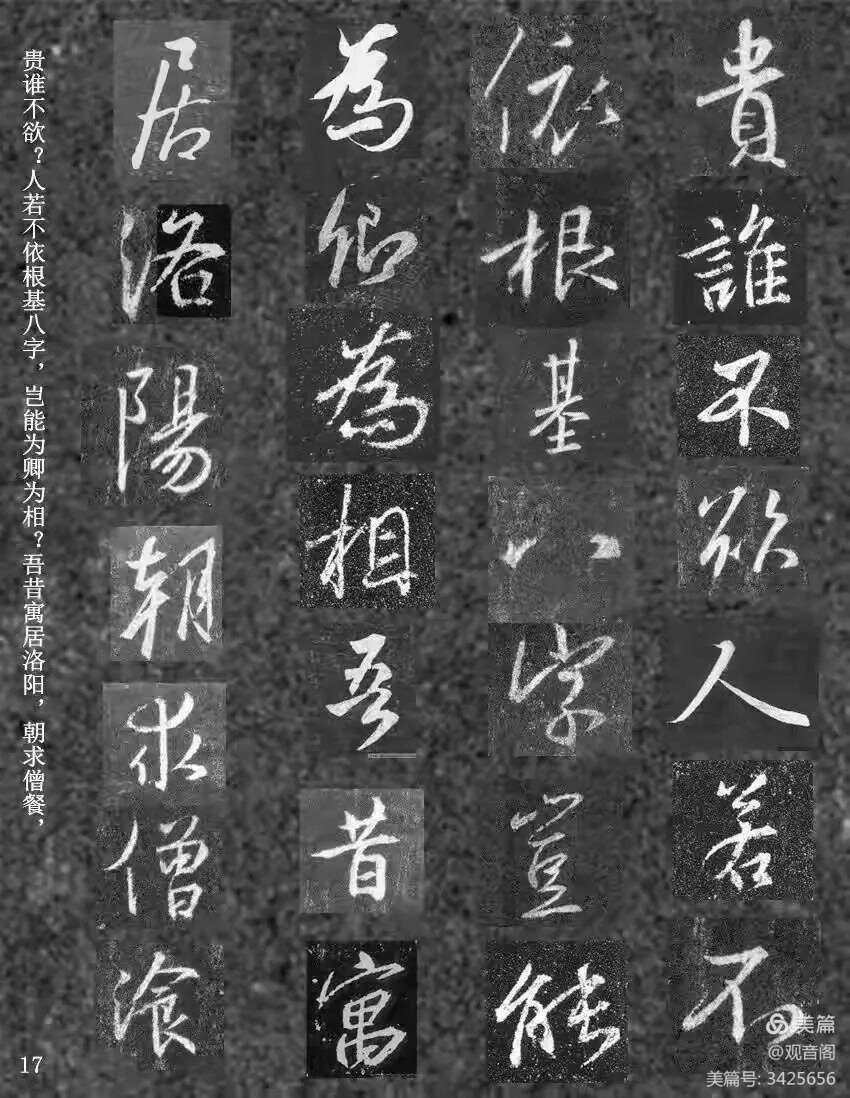 貴誰不欲人若不
依根基八字豈能
為卿為相吾昔寓
居洛陽朝求僧湌
贵谁不欲？人若不依根基八字，岂能为卿为相？吾昔寓居洛阳，朝求僧餐，
17
美篇
@观音阁
美篇号: 3425656